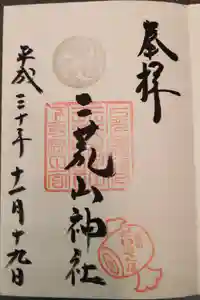 奉拝
二荒山神社
平成三十年十一月十九日